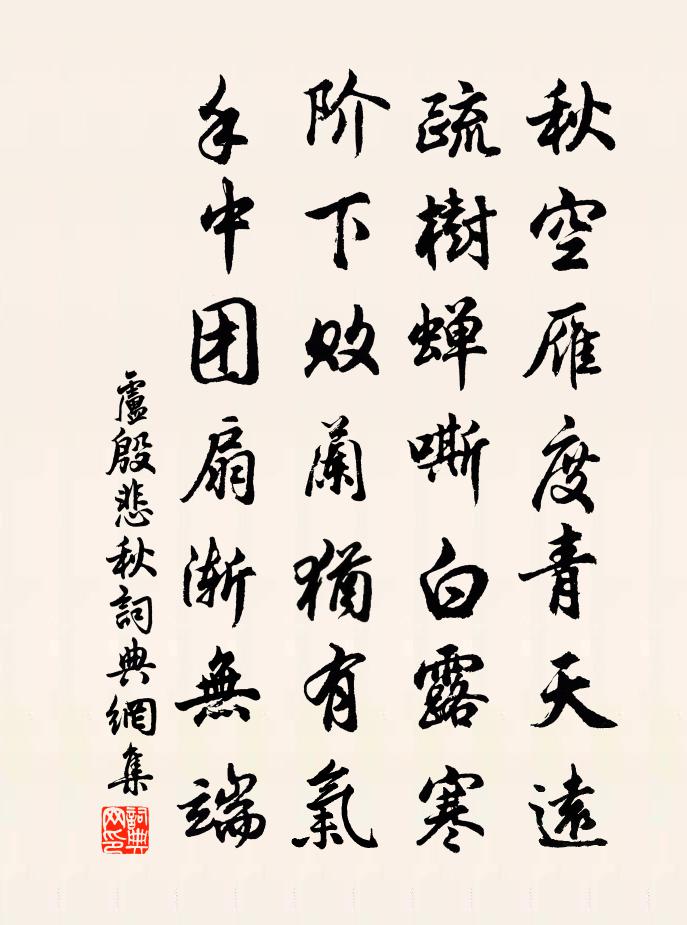 秋空雁度青天遠
疏樹蟬嘶白露寒
阶下败蘭猶有氣
手中团扇渐無端
盧殷悲秋詞典網集
詞典網印